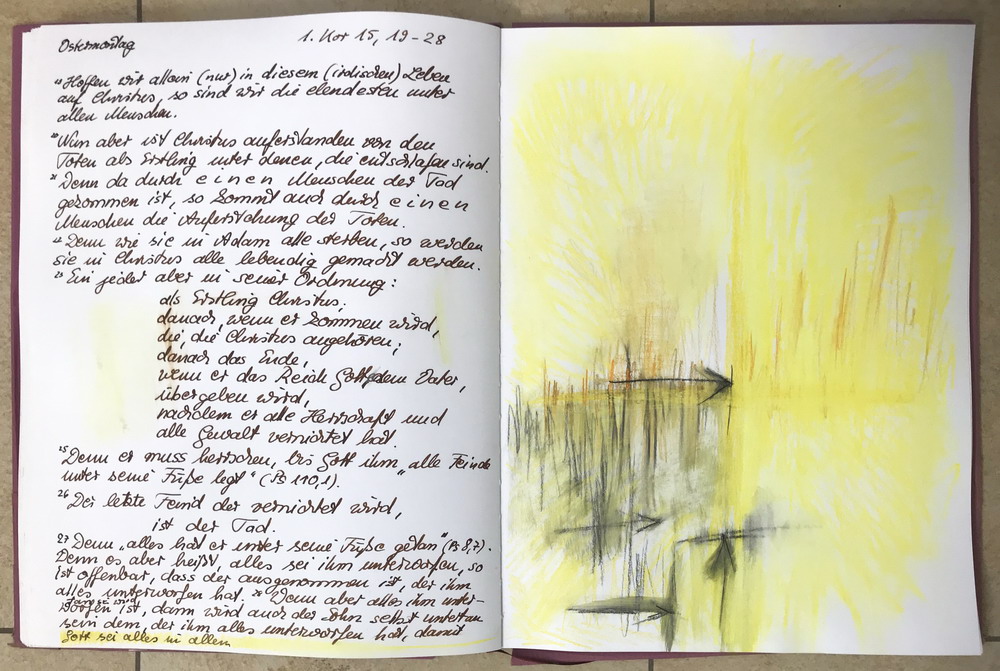 Ostermontag
1. Kor 15, 19-28
"Hoffen wir allein (nur) in diesem (irdischen) Leben
auf Christus, so sind wir die elendesten unter
allen Menschen.
20 Nun aber ist Christus auferstanden von den
Toten als Erstling unter denen, die entschlafen sind.
21 Denn da durch einen Menschen der Tod
gekommen ist, so kommt auch durch einen
Menschen die Auferstehung der Toten.
22 Denn wie sie in Adam alle sterben, so werden
sie in Christus alle lebendig gemacht werden.
23 Ein jeder aber in seiner Ordnung:
als Erstling Christus;
danach, wenn er kommen wird,
die, die Christus angehören;
danach das Ende,
wenn er das Reich Gott, dem Vater,
übergeben wird,
nachdem er alle Herrschaft und
alle Gewalt vernichtet hat.
25 Denn er muss herrschen, bis Gott ihm „alle Feinde
unter seine Füße legt" (Ps 110,1).
26 Der letzte Feind der vernichtet wird,
ist der Tod.
27 Denn „alles hat er unter seine Füße getan" (Ps 8,7).
Denn es aber heißt, alles sei ihm unterworfen, so
ist offenbar, dass der ausgenommen ist, der ihm
alles unterworfen hat. 28 Wenn aber alles ihm unter-
worfen ist, dann wird auch der Sohn selbst untertan
sein dem, der ihm alles unterworfen hat, damit
Gott sei alles in allem